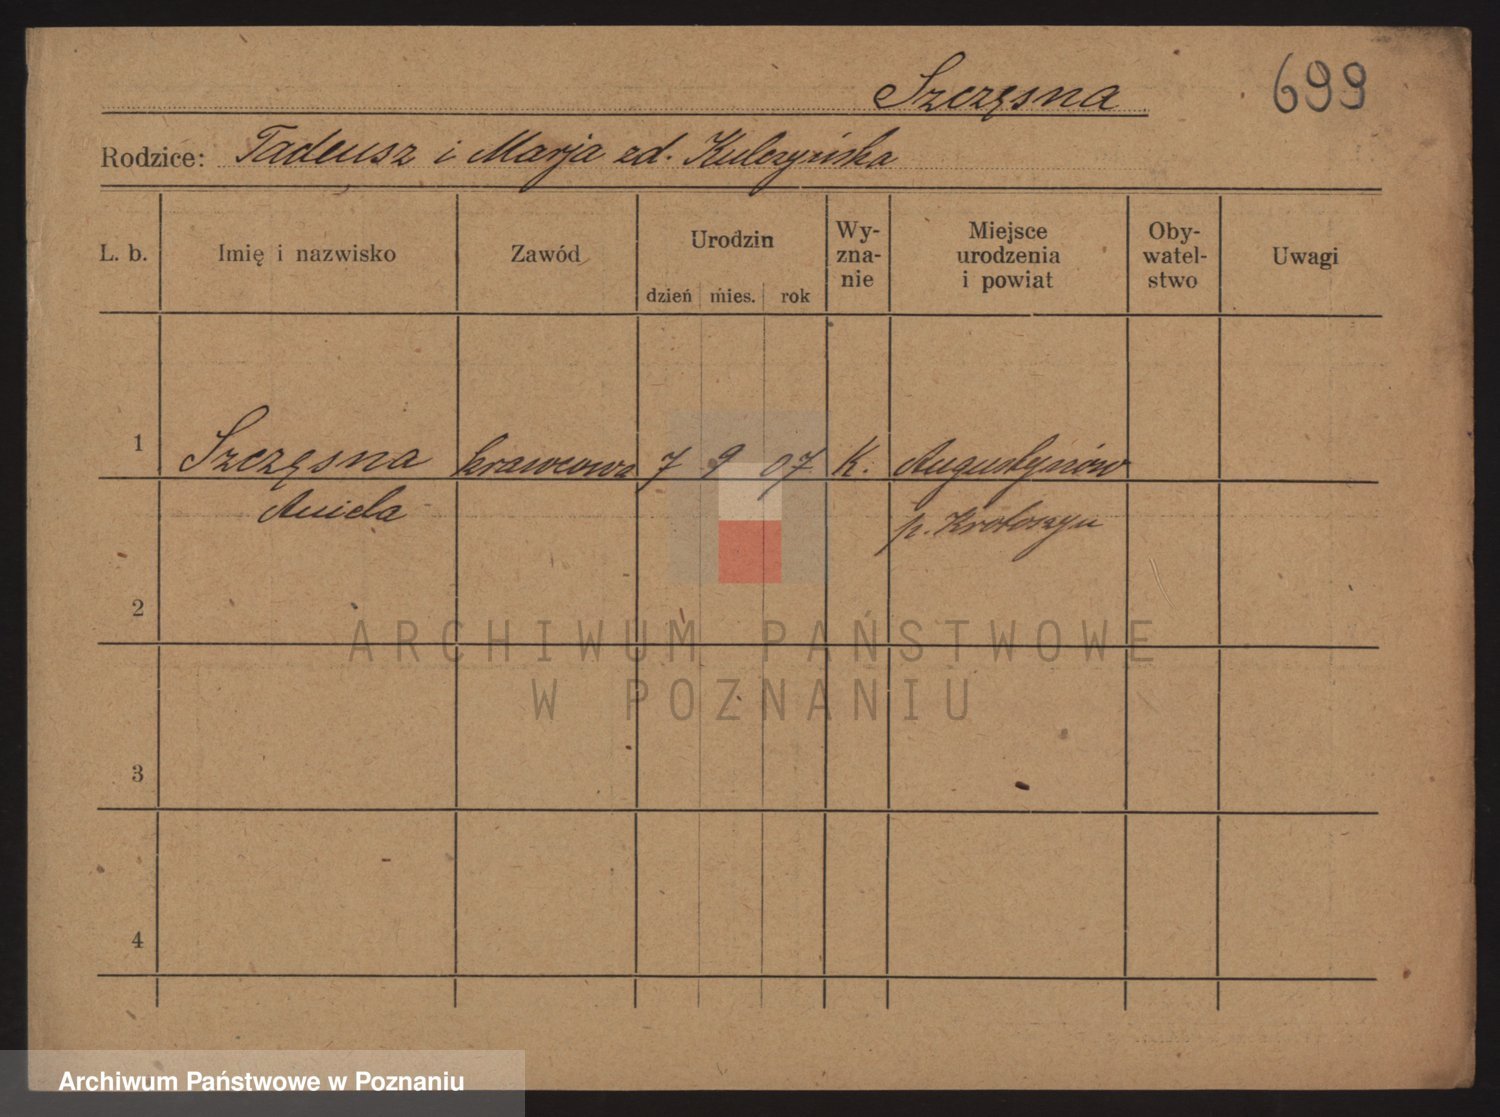 Szczęsna
699
Rodzice: Tadeusz i Marja zd. Kulczyńska
L. b.
Imię i nazwisko
Zawód
Urodzin
dzień mies. rok
Wy-
zna-
nie
Miejsce
urodzenia
i powiat
Oby-
watel-
stwo
Uwagi
1 Szczęsna krawcowa 7 9 07 K. Augustynów
Aniela p. Krotoszyn
2
ARCHIWUM PAŃSTWOWE
W POZNANIU
3
4
Archiwum Państwowe w Poznaniu